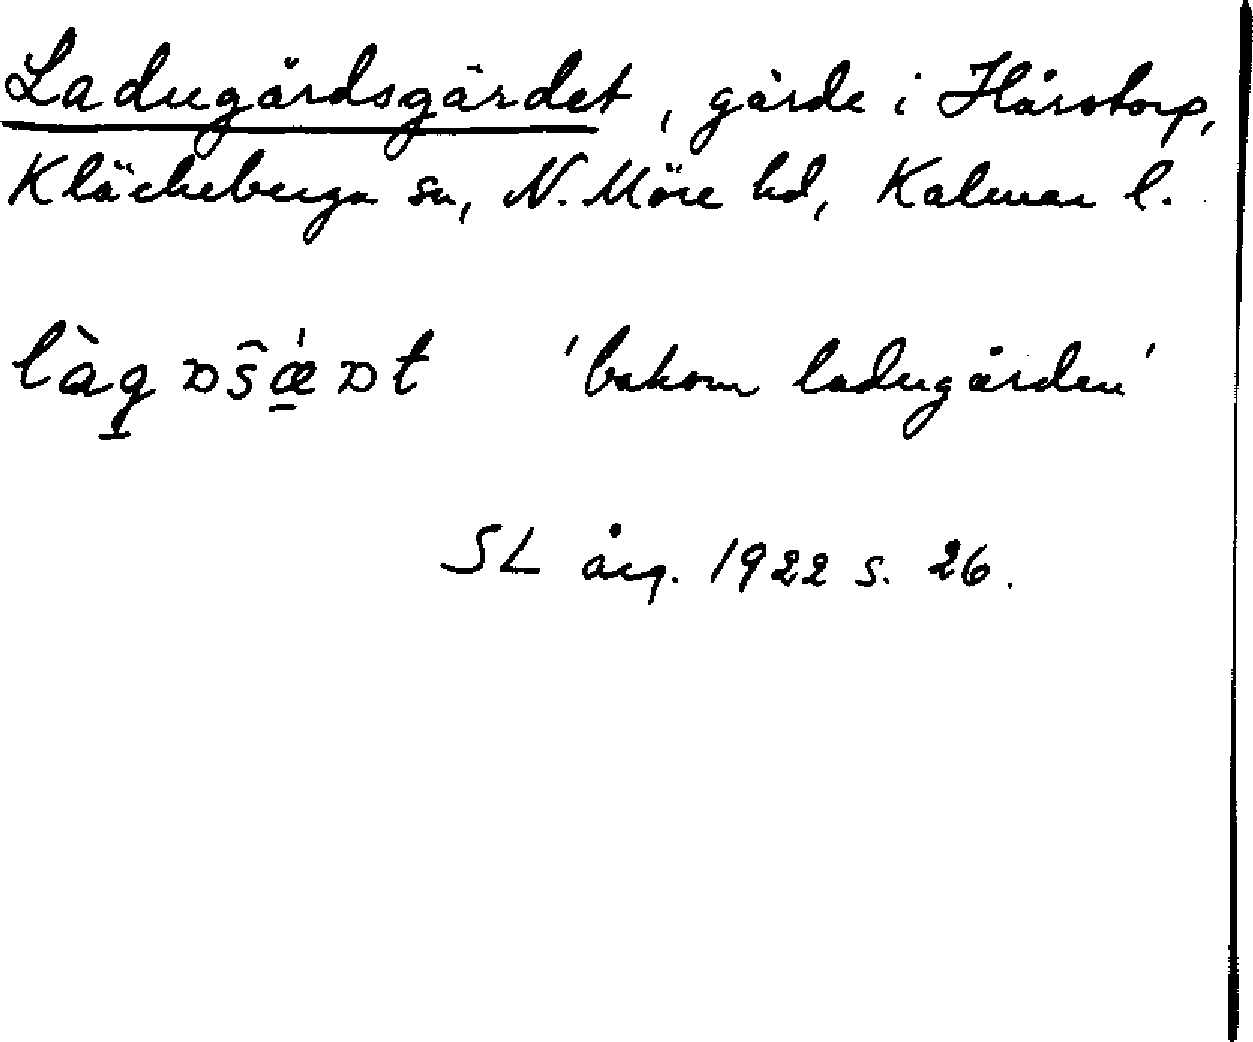 Ladugårdsgärdet, gärde i Hårstorp,
Kläckeberga sn, N. Möre hd, Kalmar l.
'bakom ladugården'
SL årg. 1922 s. 26.